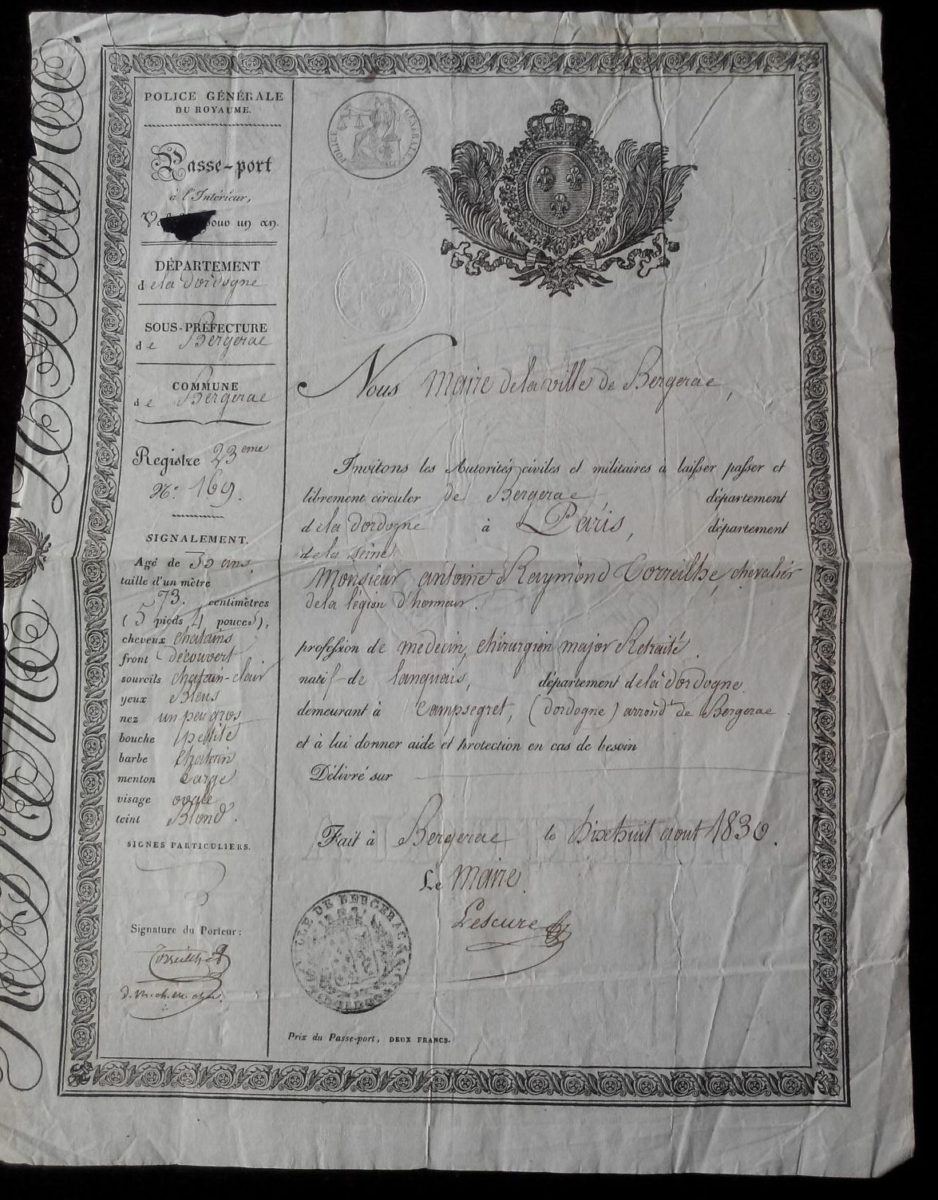 POLICE GÉNÉRALE
DU ROYAUME.
Passe-port
à l'Intérieur,
pour un an.
DÉPARTEMENT
de la dordogne
SOUS-PRÉFECTURE
de Bergerac
COMMUNE
de Bergerac
Registre 23eme
N.º 169.
SIGNALEMENT.
Agé de ans
taille d'un mètre
73. centimètres
(5 pieds 4 pouces),
cheveux chatains
front découvert
sourcils chatain-clair
yeux Bleus
nez un peu gros
bouche petite
barbe chatain
menton Large
visage ovale
teint Blond.
SIGNES PARTICULIERS.
Signature du Porteur:
Correilhe
POLICE GÉNÉRALE
Nous Maire de la ville de Bergerac,
Invitons les Autorités civiles et militaires à laisser passer et
librement circuler de Bergerac, département
de la dordogne à Paris, département
de la seine
Monsieur antoine Raymond Correilhe, chevalier
de la légion d'honneur.
profession de medecin, chirurgien major Retraité.
natif de Lanquais, département de la dordogne
demeurant à Campsegret, (dordogne) arrond. de Bergerac.
et à lui donner aide et protection en cas de besoin
Délivré sur
Fait à Bergerac le dixhuit aout 1830.
Le Maire.
Lescure
VILLE DE BERGERAC
Prix du Passe-port, DEUX FRANCS.